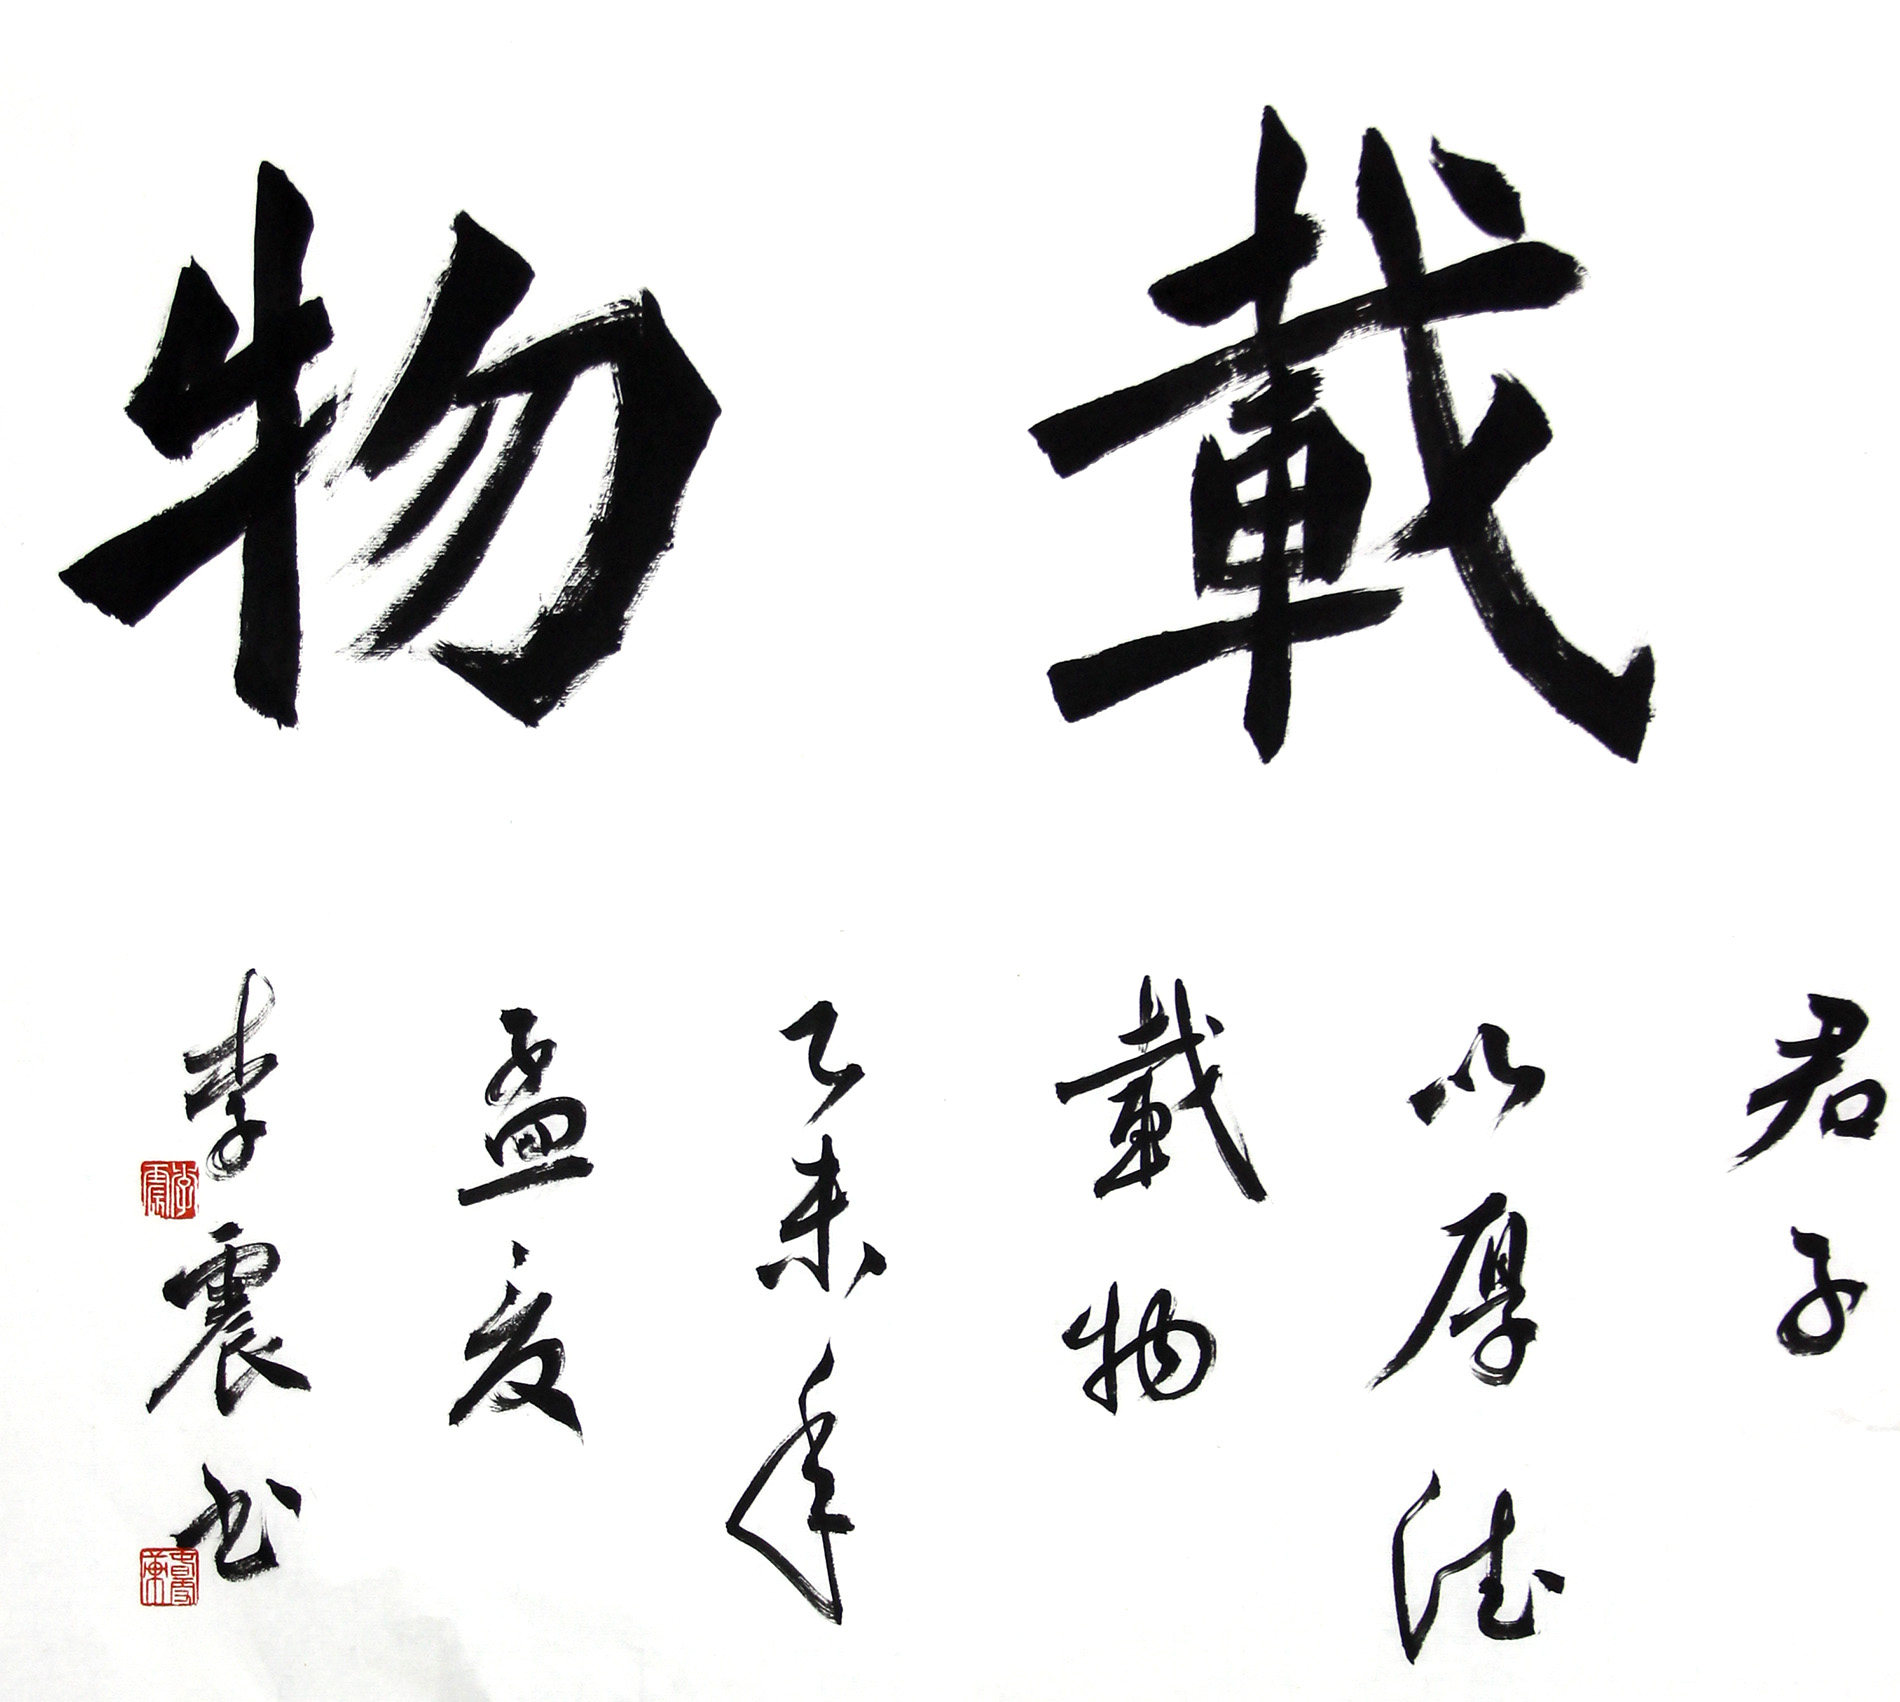 載物
君子
以厚德
載物
乙未年
孟夏
李震书